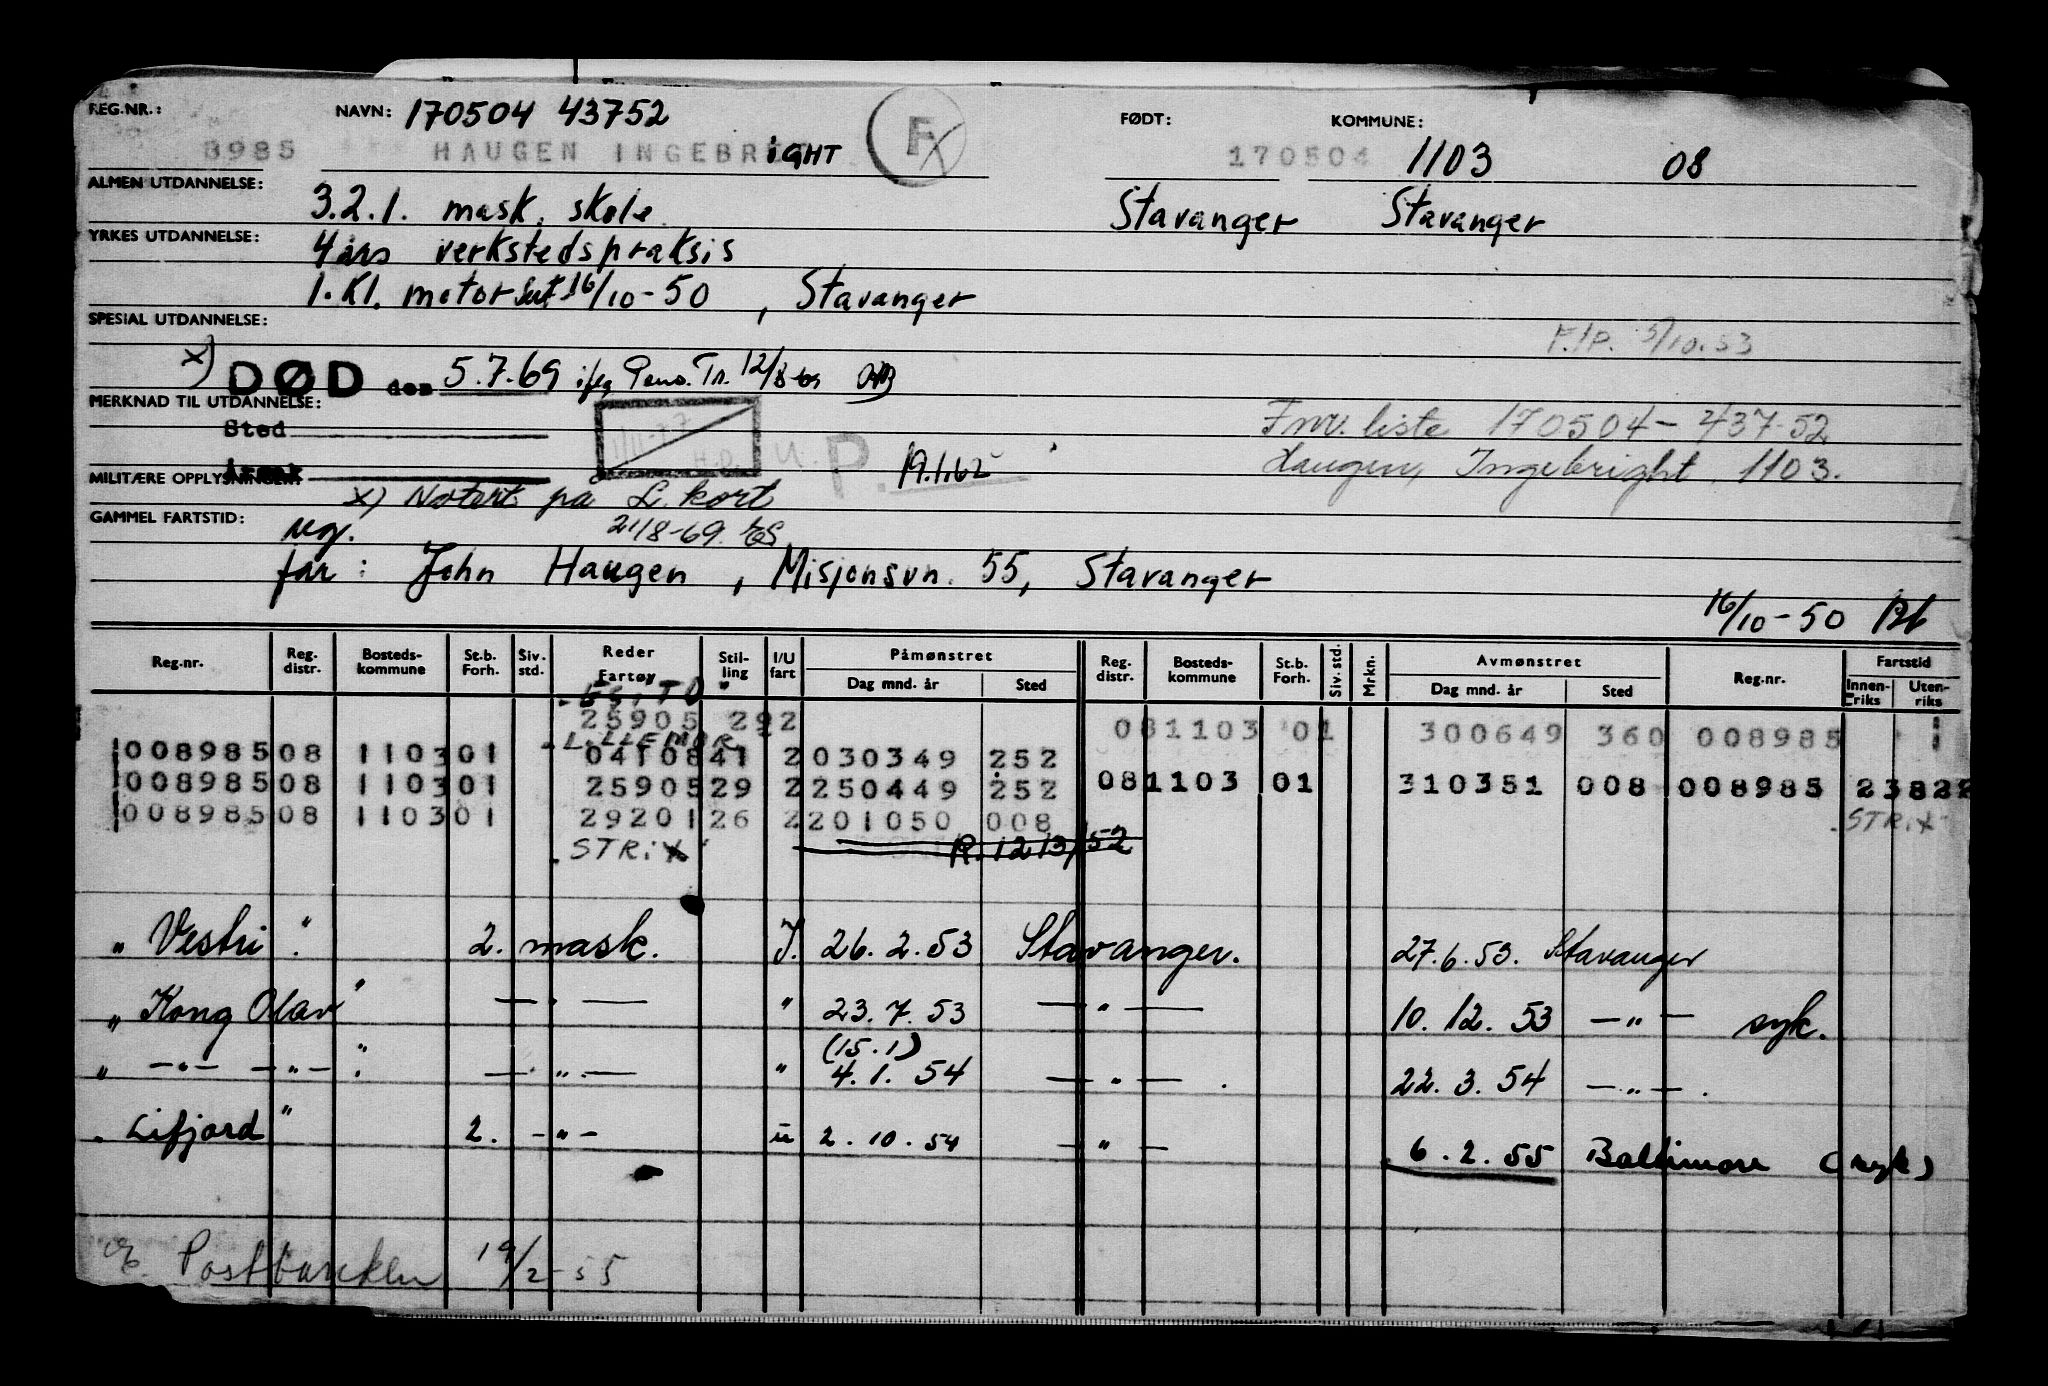 REG.NR.: NAVN: 170504 43752 FØDT: KOMMUNE:
8985 HAUGEN INGEBRIGHT FX 170504 1103 08
ALMEN UTDANNELSE: 3.2.1. mask. skole Stavanger Stavanger
YRKES UTDANNELSE: 4 års verkstedspraksis
1. Kl. motor sert 16/10-50, Stavanger
SPESIAL UTDANNELSE:
F./P. 5/10.53
x) DØD den 5.7.69 ifлg Pens. Tr. 12/8-69
MERKNAD TIL UTDANNELSE:
Fnr. liste 170504-437-52
Sted
U.P. 19.1.62
Haugen, Ingebright, 1103.
Årsak
MILITÆRE OPPLYSNINGER:
x) Notert på L. kort
GAMMEL FARTSTID:
21/8-69. ES
far: John Haugen, Misjonsvn. 55, Stavanger
16/10-50 Bt
Reg.nr. Reg. distr. Bosteds-kommune St.b. Forh. Siv. std. Reder Fartøy Stil-ling I/U fart Påmønstret Dag mnd. år Sted Reg. distr. Bosteds-kommune St.b. Forh. Siv. std. Mrkn. Avmønstret Dag mnd. år Sted Reg.nr. Fartstid Innen-riks Uten-riks
ESITO
25905 292 081103 01 300649 360 008985 1
LILLEMOR
008985 08 1103 01 04108 41 2 030349 252
008985 08 1103 01 25905 29 2 250449 252 081103 01 310351 008 008985 23822
008985 08 1103 01 29201 26 2 201050 008 STRIX
STRIX R. 1213/52
" Vestri " 2. mask. I. 26.2.53 Stavanger. 27.6.53. Stavanger
" Kong Olav " — " — " 23.7.53 — " — 10.12.53 — " — syk.
(15.1)
" — " — — " — " — " — " 4.1.54 — " — . 22.3.54 — " — .
" Lifjord " 2. — " — u 2.10.54 — " — 6.2.55 Baltimore (syk)
Postbanken 19/2-55